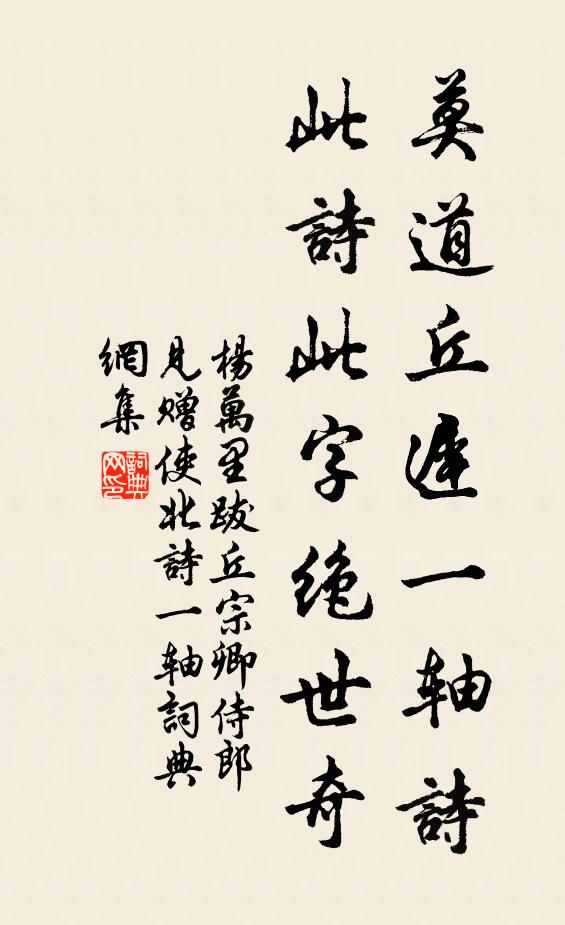 莫道丘遲一轴詩
此詩此字絶世奇
楊萬里跋丘宗卿侍郎
見贈使北詩一轴詞典
網集
詞典
网印